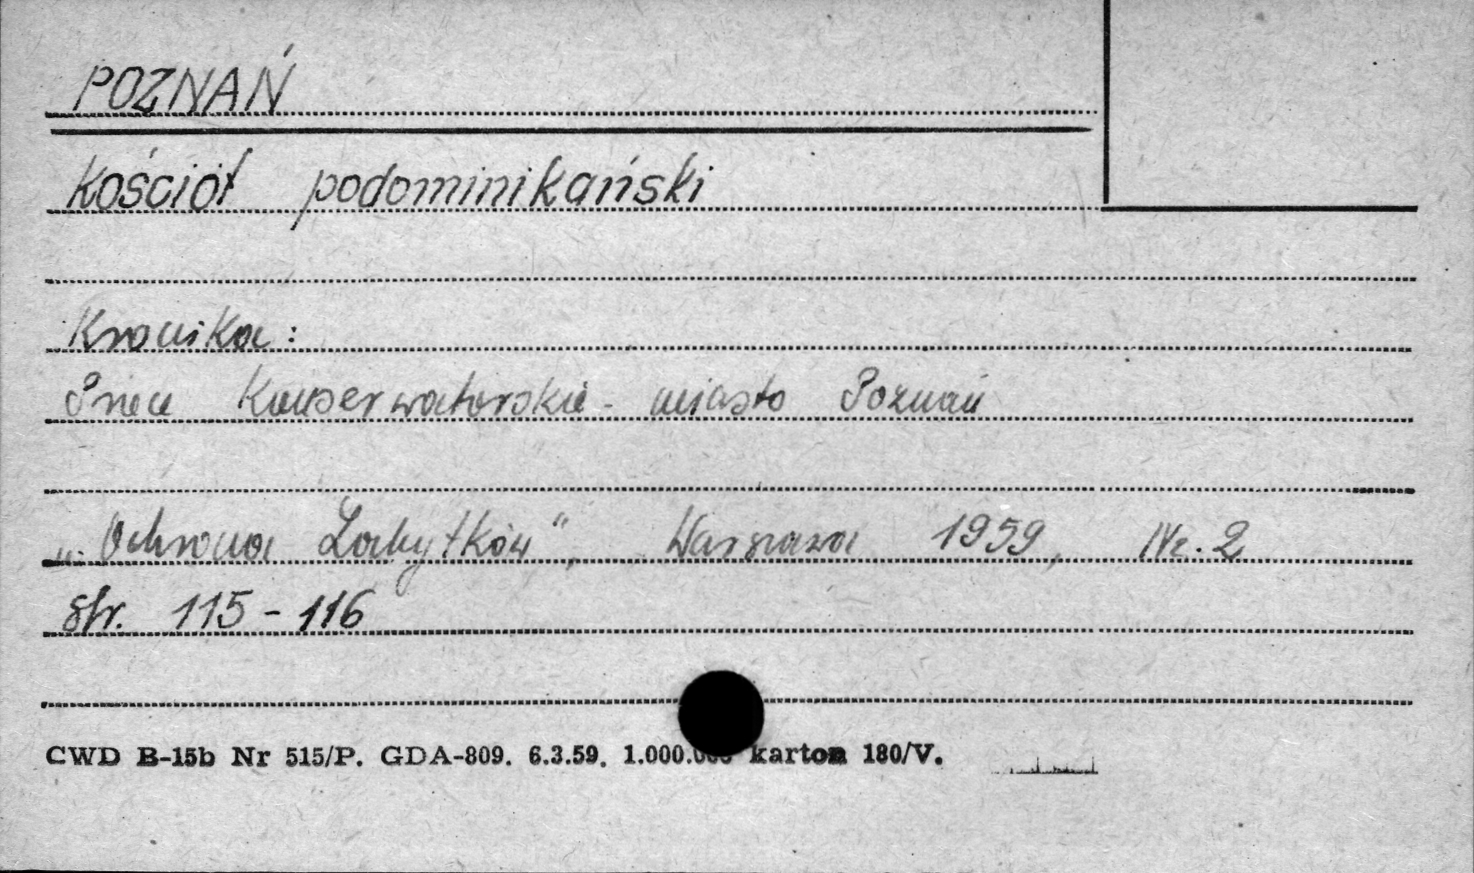 POZNAŃ
Kościół podominikański
Kronika:
Prace Konserwatorskie - miasto Poznań
w: Ochrona Zabytków", Warszawa 1959, Nr. 2
str. 115 - 116
CWD B-15b Nr 515/P. GDA-809. 6.3.59. 1.000.000 karton 180/V.